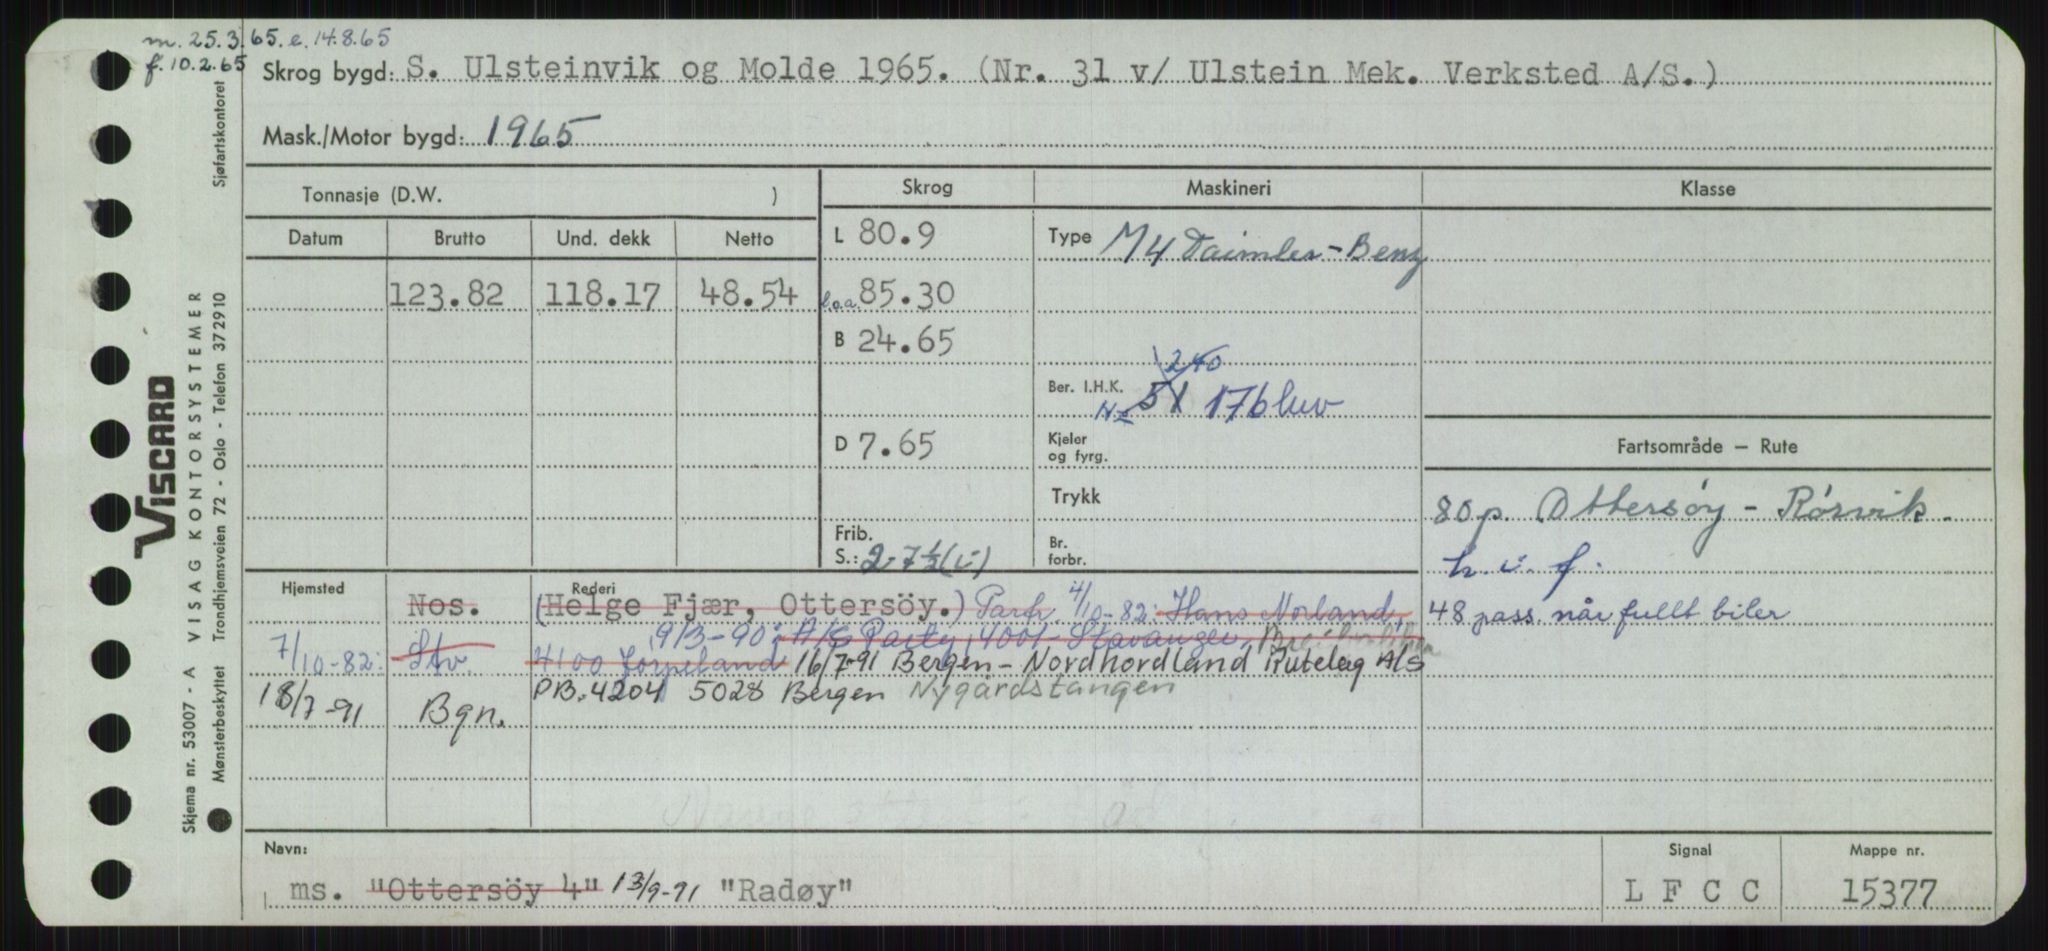 m. 25.3.65. e. 14.8.65
f. 10.2.65
Skrog bygd: S. Ulsteinvik og Molde 1965. (Nr. 31 v/ Ulstein Mek. Verksted A/S.)
Mask./Motor bygd: 1965
Tonnasje (D.W. )
Skrog
Maskineri
Klasse
Datum Brutto Und. dekk Netto
123.82 118.17 48.54
L 80.9
l.o.a. 85.30
B 24.65
D 7.65
Frib.
S.: 2-7½(i)
Type M4 Daimler-Benz
240
Ber. I.H.K. 51 176
Kjeler
og fyrg.
Trykk
Br.
forbr.
Fartsområde — Rute
80 p. Ottersöy - Rörvik.
h. i. f.
48 pass når fullt biler
Hjemsted
Rederi
Nos. (Helge Fjær, Ottersöy.) Partr. 4/10-82: Hans Norland,
9/3-90: A/S Party, 4001 Stavanger,
7/10-82: Stv. 4100 Jørpeland 16/7-91 Bergen-Nordhordland Rutelag A/S
PB. 4204 5028 Bergen Nygårdstangen
18/7-91 Bgn.
Navn:
ms. "Ottersöy 4" 13/9-91 "Radøy"
Signal
L F C C
Mappe nr.
15377
VISCARD
Skjema nr. 53007 - A VISAG KONTORSYSTEMER
Mønsterbeskyttet Trondhjemsveien 72 - Oslo - Telefon 372910 Sjøfartskontoret